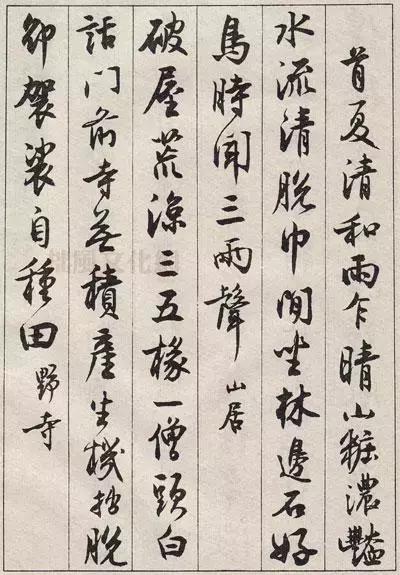 首夏清和雨乍晴山糚濃豔
水流清脫巾閒坐林邊石好
鳥時聞三兩聲 山居
破屋荒涼三五椽一僧頭白
話門前寺無積產生機拙脫
卻袈裟自種田 野寺